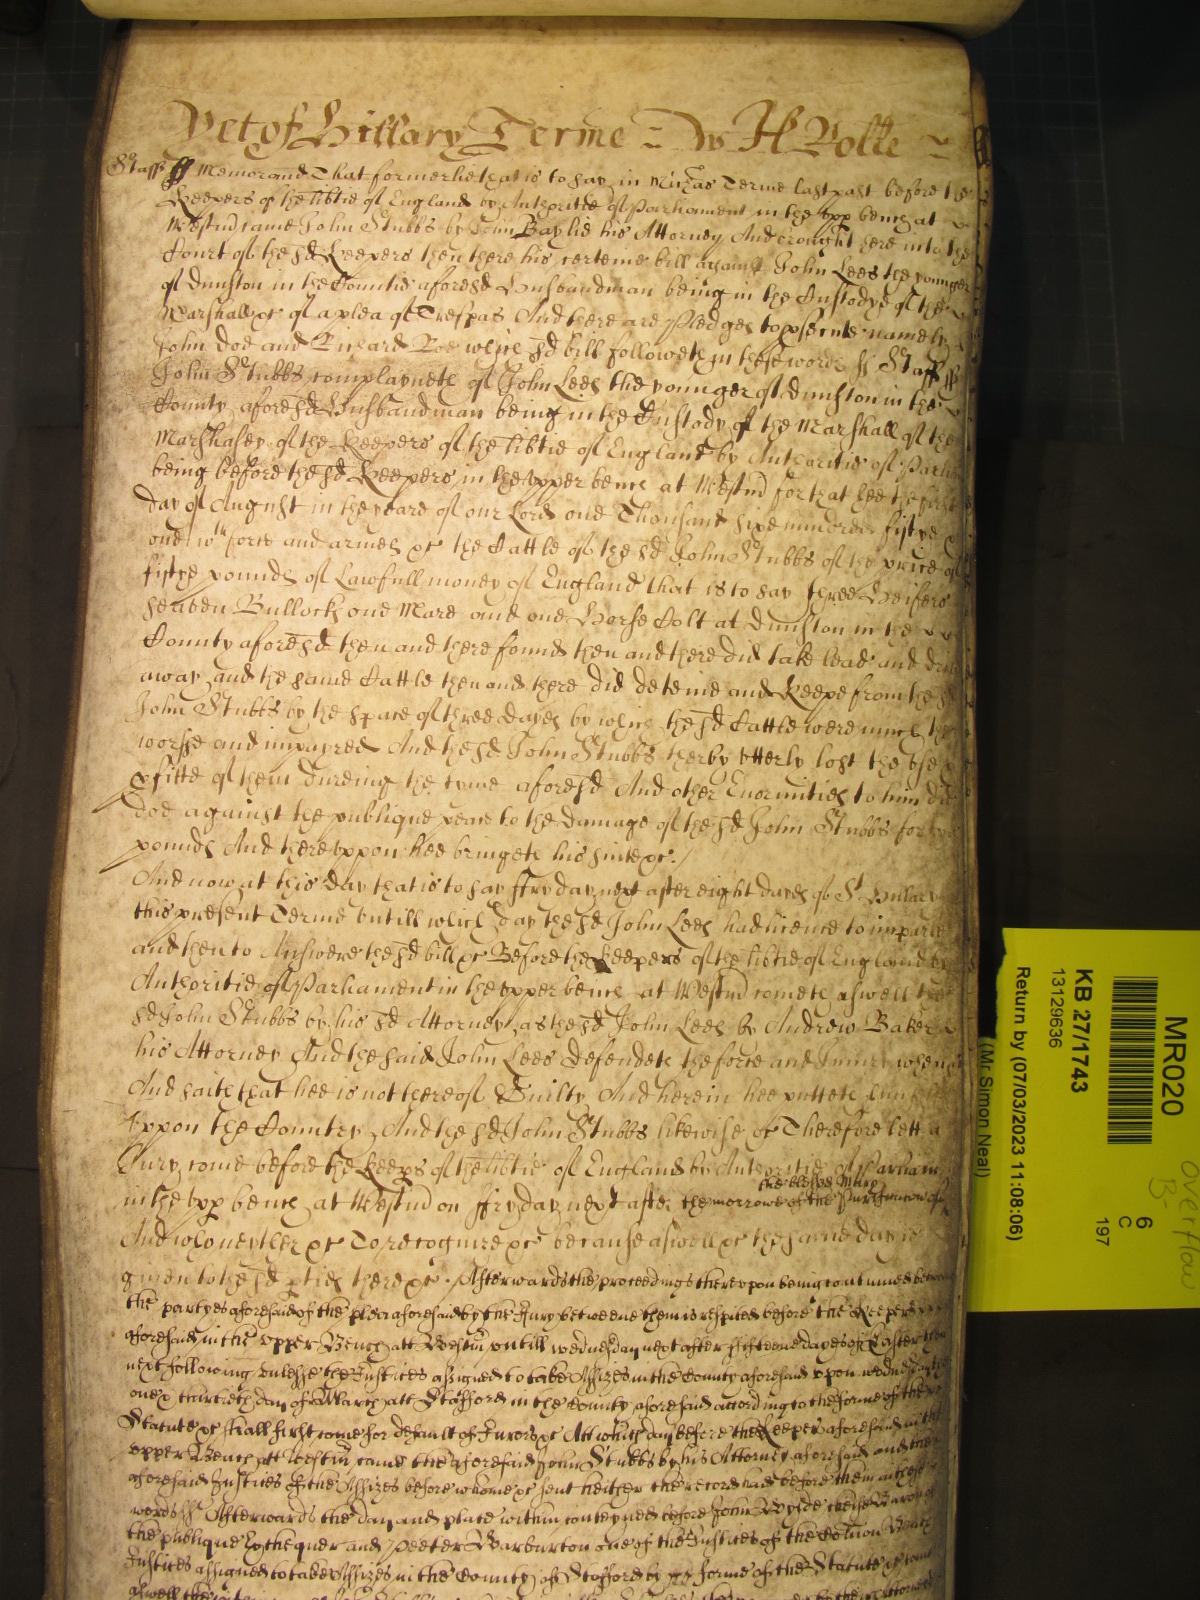 Yet of Hillary Terme - Ws H Rolle -
Staff ss Memorand That formerlie that is to say in Michas Terme last past before the
Keepers of the libtie of England by Authoritie of Parliament in the upp bench at
Westm̃ came John Stubbs by John Baylie his Attorney And brought here into the
Court of the sd Keepers then there his certeine bill against John Lees the younger
of Dunston in the Countie aforesd Husbandman being in the Custodye of the
Marshall xc of a plea of Trespas And there are Pledges to psecute namely
John Doe and Richard Roe which sd bill followeth in these words ss Staff ss
John Stubbs complayneth of John Lees the younger of Dunston in the
County aforesd Husbandman being in the Custody of the Marshall of the
Marshalsey of the Keepers of the libtie of England by Authoritie of Parliam
being before the sd Keepers in the upper bench at Westm̃ for that hee the first
day of August in the yeare of our Lord one Thousand sixe hundred fiftye
one wth force and armes xc the Cattle of the sd John Stubbs of the price of
fiftye pounds of Lawfull money of England that is to say three Heifers
seaven Bullocks one Mare and one Horse Colt at Dunston in the
County aforesd then and there found then and there did take lead and drive
away and the same Cattle then and there did deteine and Keepe from the sd
John Stubbs by the space of three dayes by which the sd Cattle were much the
worse and impayred And the sd John Stubbs therby utterly lost the use
pfitte of them dureing the tyme aforesd And other Enormities to him did
doe against the publique peace to the damage of the sd John Stubbs
pounds And thereuppon hee bringeth his suite xc./
And now at this day that is to say ffryday next after eight dayes of St Hillary
this present Terme untill which day the sd John Lees had licence to imparle
and then to Answere the sd bill xc Before the Keepers of the libtie of England by
Authoritie of Parliament in the upper bench at Westm̃ cometh aswell the
sd John Stubbs by his sd Attorney as the sd John Lees by Andrew Baker
his Attorney And the said John Lees defendeth the force and Injury when xc
And saith that hee is not thereof Guilty And herein hee putteth himselfe
uppon the Country And the sd John Stubbs likewise xc Therefore lett a
Jury come before the Keeps of the libtie of England by Authoritie of Parliam
in the upp bench at Westm̃ on ffryday next after the morrowe of the Purificacon of
the blessed Mary
And who neyther xc To recognize xc because aswell xc the same day is
given to the sd pties there xc. Afterwards the proceedings thereupon being continued betweene
the partyes aforesaid of the plea aforesaid by the Jury betweene them is respited before the Keepers
aforesaid in the Upper Bench att Westm̃ untill wednesday next after fifteene dayes of Easter then
next following unlesse the Justices assigned to take Assizes in the County aforesaid upon wednesday the
one & thirtieth day of March att Stafford in the County aforesaid according to the forme of the
Statute xc shall first come for default of Jurors xc Att which day before the Keepers aforesaid in the
upper Bench att Westm̃ came the aforesaid John Stubbs by his Attorney aforesaid and the
aforesaid Justices of the Assizes before whome xc sent heither the record had before them in these
words ss Afterwards the day and place within conteyned before John Wylde cheife Baron of
the publique Exchequer and Peeter Warburton one of the Justices of the Comon Bench
Justices assigned to take Assizes in the County of Stafford by forme of the Statute xc came
aswell the
MR020
KB 27/1743
13129636
Return by (07/03/2023 11:08:06)
(Mr Simon Neal)
6
C
197
overflow
B-